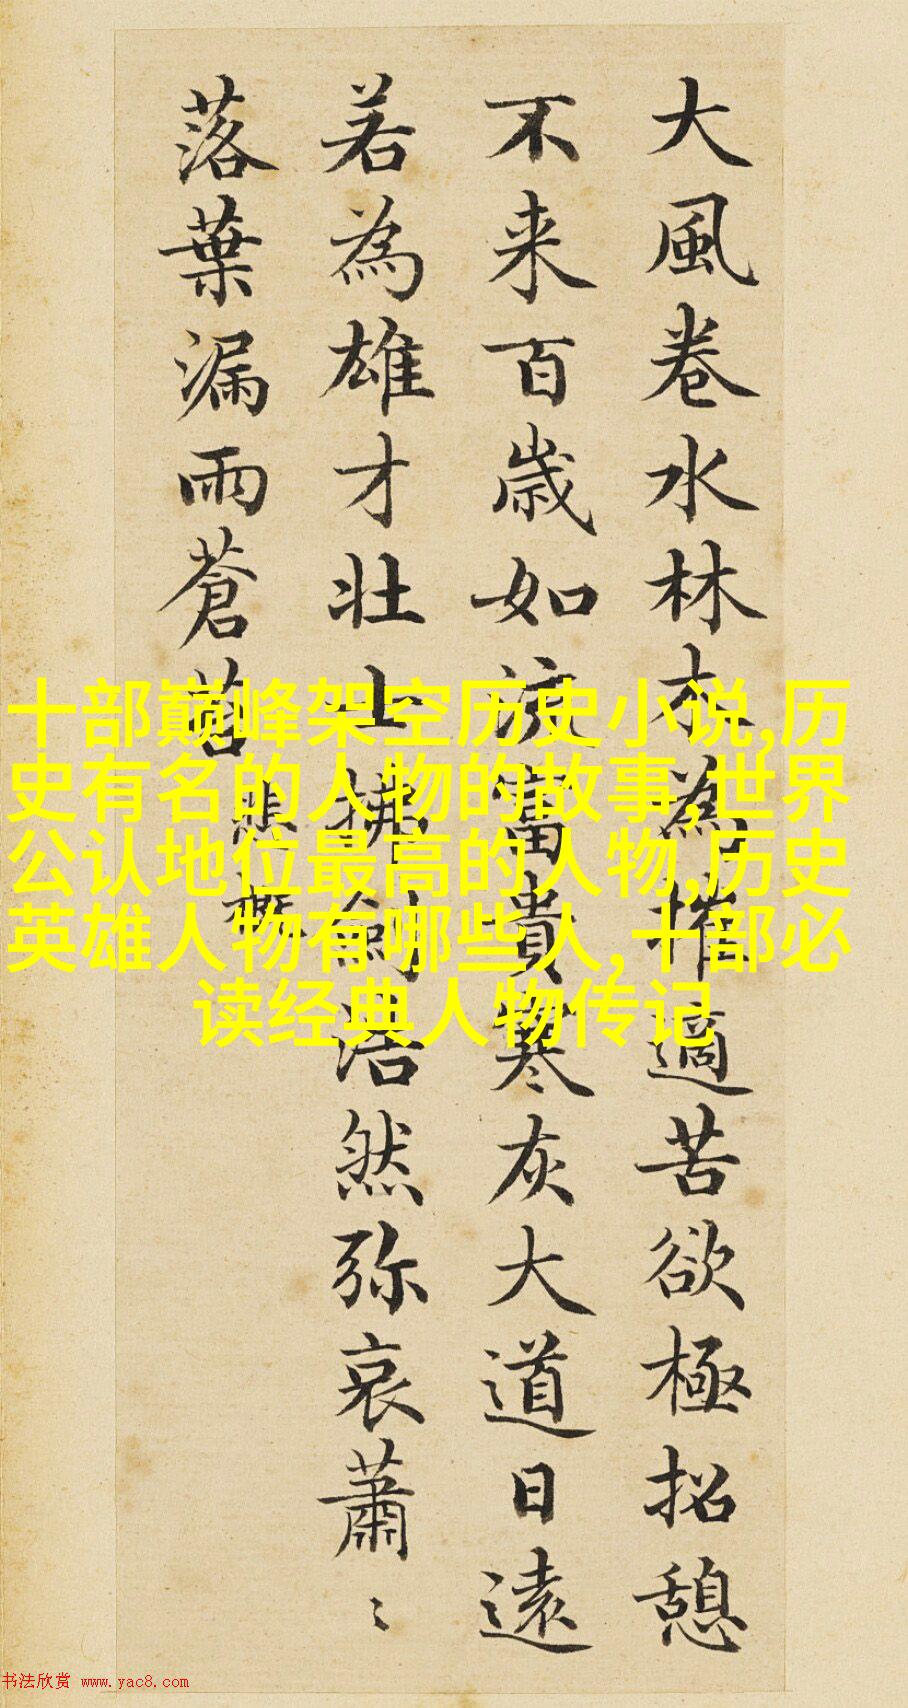 大風卷水林木為摧適苦欲極招憩
不来百歳如流富貴寒灰大道日遠
若為雄才壮士拂劍浩然弥哀蕭〻
落葉漏雨蒼苔
悲慨
十部巅峰架空历史小说,历
史有名的人物的故事,世界
公认地位最高的人物,历史
英雄人物有哪些人,十部必
读经典人物传记
书法欣赏 www.yac8.com